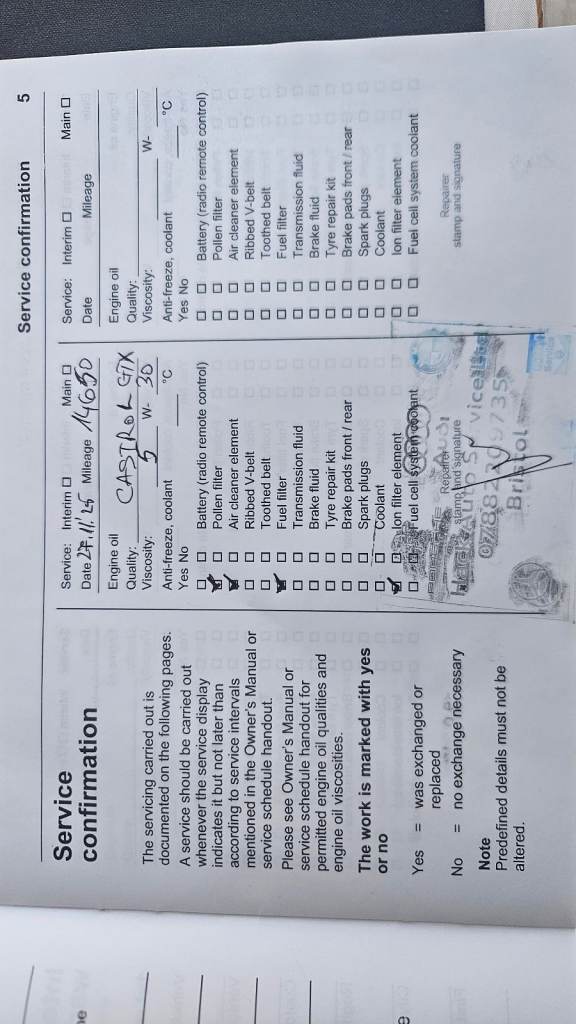 Service confirmation 5
Service
confirmation
The servicing carried out is
documented on the following pages.
A service should be carried out
whenever the service display
indicates it but not later than
according to service intervals
mentioned in the Owner's Manual or
service schedule handout.
Please see Owner's Manual or
service schedule handout for
permitted engine oil qualities and
engine oil viscosities.
The work is marked with yes
or no
Yes = was exchanged or
replaced
No = no exchange necessary
Note
Predefined details must not be
altered.
Service: Interim □ Main □
Date 27.11.25 Mileage 14650
Engine oil
Quality: CASTROL GTX
Viscosity: 5 W- 30
Anti-freeze, coolant °C
Yes No
□ □ Battery (radio remote control)
☑ □ Pollen filter
☑ □ Air cleaner element
□ □ Ribbed V-belt
□ □ Toothed belt
☑ □ Fuel filter
□ □ Transmission fluid
□ □ Brake fluid
□ □ Tyre repair kit
□ □ Brake pads front / rear
□ □ Spark plugs
□ □ Coolant
☑ □ Ion filter element
□ □ Fuel cell system coolant
Repairer
stamp and signature
Bristol
Service: Interim □ Main □
Date Mileage
Engine oil
Quality:
Viscosity: W-
Anti-freeze, coolant °C
Yes No
□ □ Battery (radio remote control)
□ □ Pollen filter
□ □ Air cleaner element
□ □ Ribbed V-belt
□ □ Toothed belt
□ □ Fuel filter
□ □ Transmission fluid
□ □ Brake fluid
□ □ Tyre repair kit
□ □ Brake pads front / rear
□ □ Spark plugs
□ □ Coolant
□ □ Ion filter element
□ □ Fuel cell system coolant
Repairer
stamp and signature